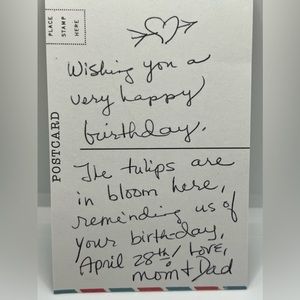 PLACE
STAMP
HERE
Wishing you a
very happy
birthday.
POSTCARD
The tulips are
in bloom here,
reminding us of
your birth-day,
April 28th! Love,
mom + Dad